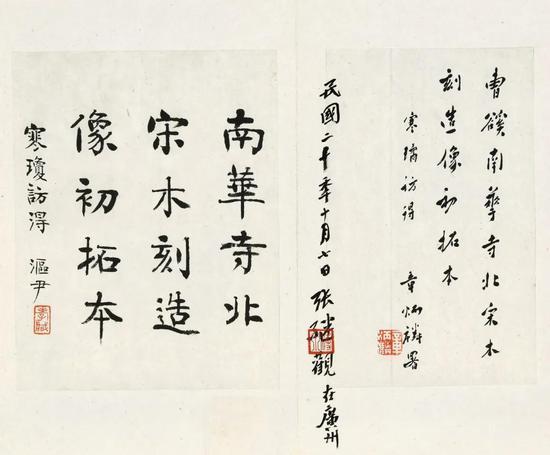 曹谿南華寺北宋木
刻造像初拓本
寒瓊訪得 章炳麟署
民國二十年十月七日張繼觀在廣州
南華寺北
宋木刻造
像初拓本
寒瓊訪得 漚尹